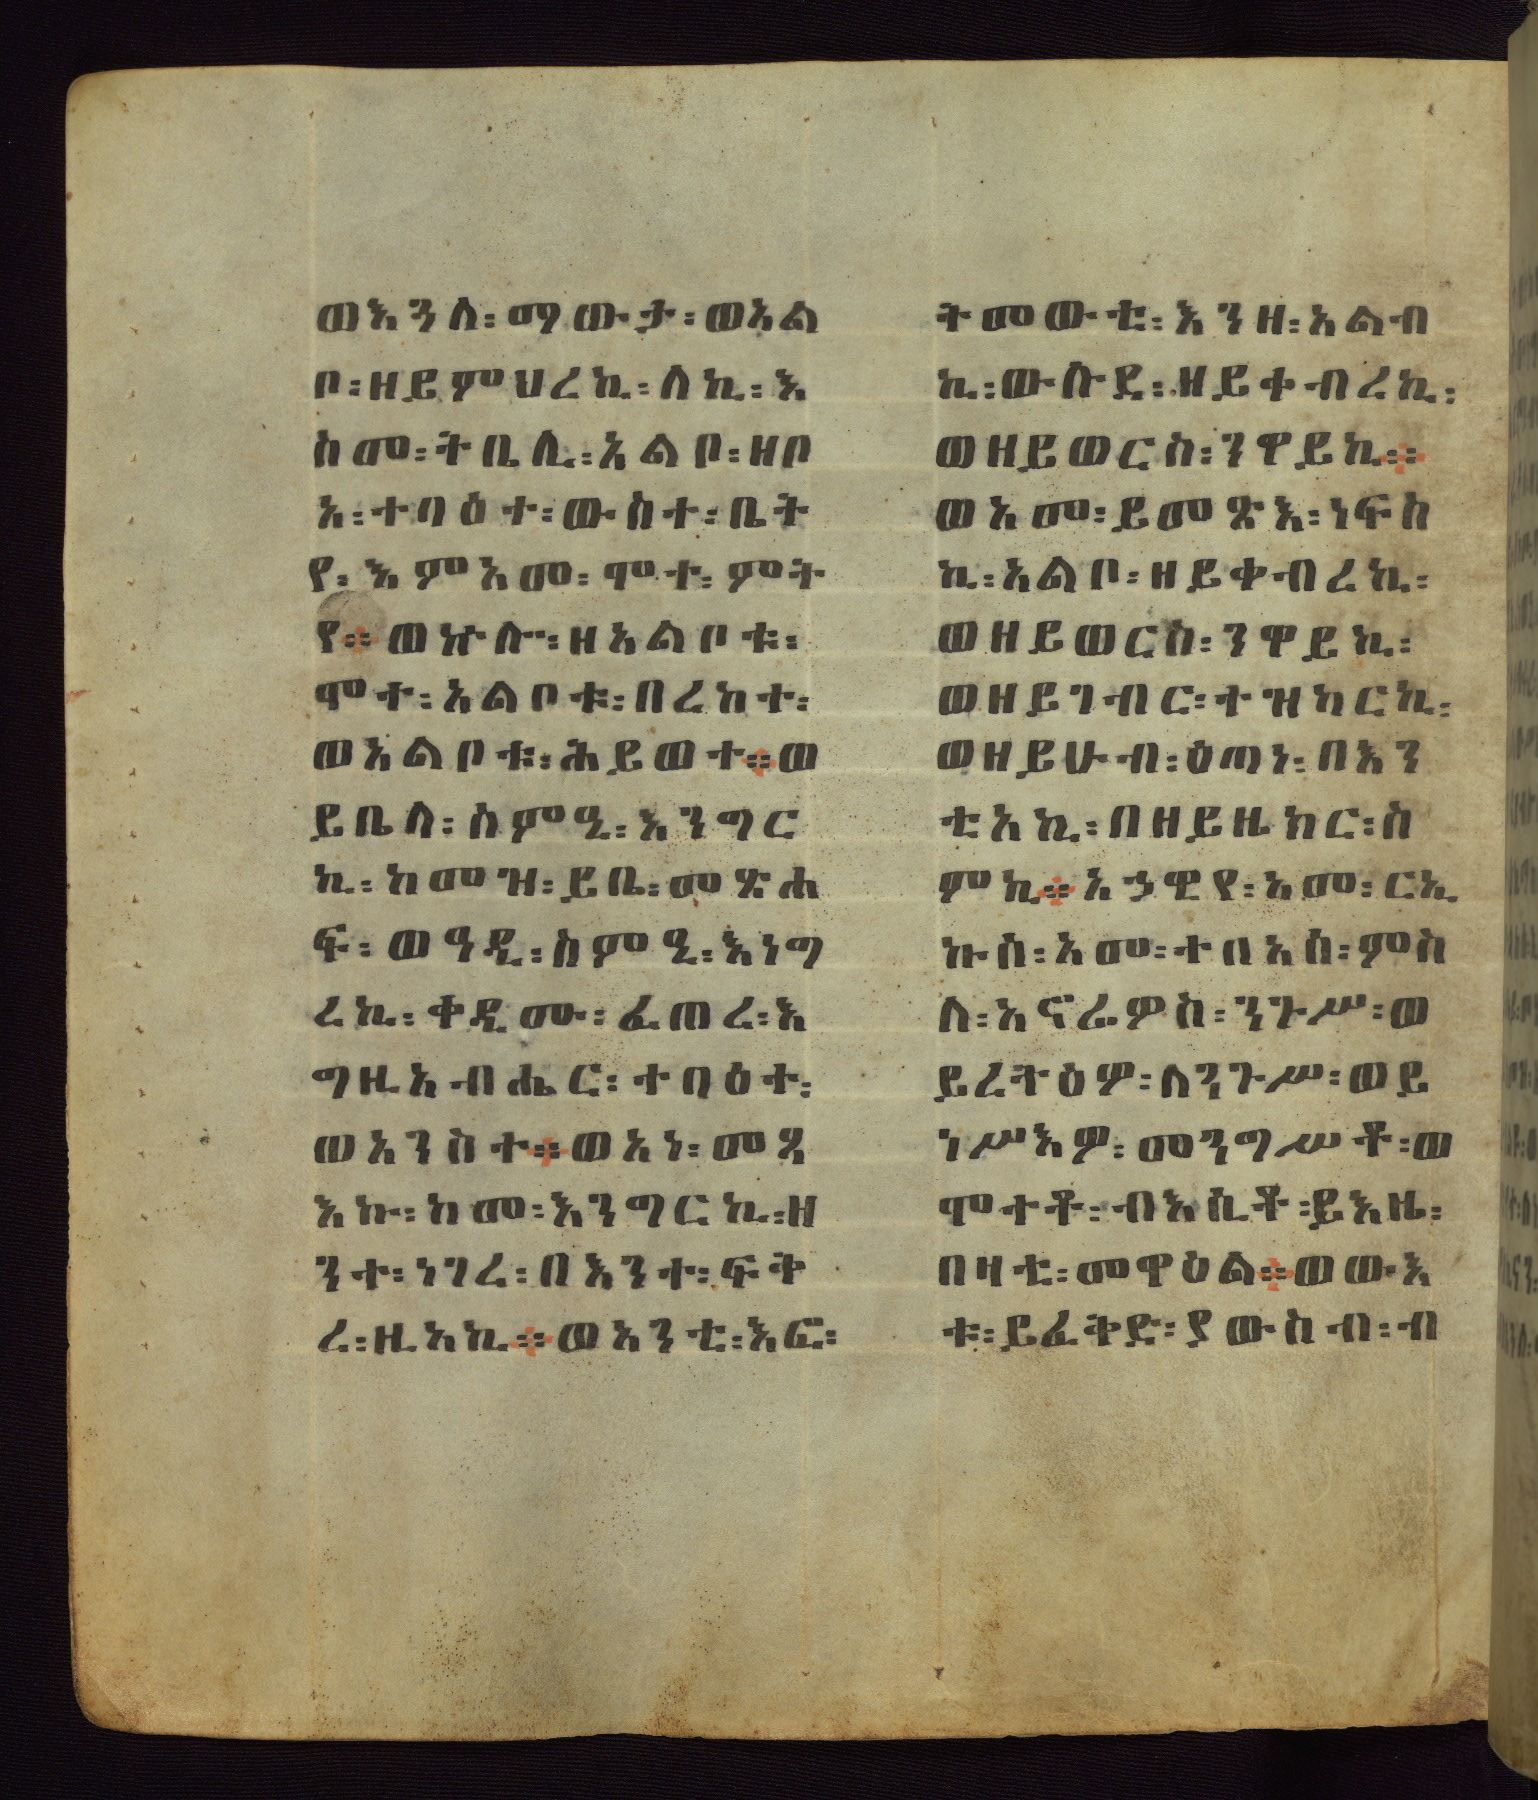 ወእጓለ፡ማውታ፡ወአል
ቦ፡ዘይምህረኪ፡ለኪ፡እ
ስመ፡ትቤሊ፡አልቦ፡ዘቦ
አ፡ተባዕተ፡ውስተ፡ቤት
የ፡እምአመ፡ሞተ፡ምት
የ። ወኵሉ፡ዘአልቦቱ፡
ሞተ፡አልቦቱ፡በረከተ፡
ወአልቦቱ፡ሕይወተ።ወ
ይቤላ፡ስምዒ፡እንግር
ኪ፡ከመዝ፡ይቤ፡መጽሐ
ፍ፡ወዓዲ፡ስምዒ፡እነግ
ረኪ፡ቀዲሙ፡ፈጠረ፡እ
ግዚአብሔር፡ተባዕተ፡
ወአንስተ።ወአነ፡መጻ
እኩ፡ከመ፡እንግርኪ፡ዘ
ንተ፡ነገረ፡በእንተ፡ፍቅ
ረ፡ዚአኪ።ወአንቲ፡እፎ፡
ትመውቲ፡እንዘ፡አልብ
ኪ፡ውሉደ፡ዘይቀብረኪ፡
ወዘይወርስ፡ንዋይኪ።
ወአመ፡ይመጽእ፡ነፍስ
ኪ፡አልቦ፡ዘይቀብረኪ፡
ወዘይወርስ፡ንዋይኪ፡
ወዘይገብር፡ተዝካርኪ፡
ወዘይሁብ፡ዕጣነ፡በእን
ቲአኪ፡በዘይዜከር፡ስ
ምኪ።አኃዊየ፡አመ፡ርኢ
ኩስ፡አመ፡ተበአስ፡ምስ
ለ፡አናሬዎስ፡ንጉሥ፡ወ
ይረትዕዎ፡ለንጉሥ፡ወይ
ነሥእዎ፡መንግሥቶ፡ወ
ሞተቶ፡ብእሲቶ፡ይእዜ፡
በዛቲ፡መዋዕል።ወውእ
ቱ፡ይፈቅድ፡ያውስብ፡ብ